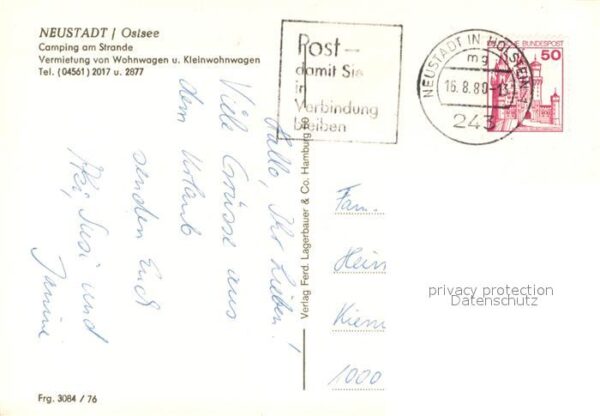 NEUSTADT / Ostsee
Camping am Strande
Vermietung von Wohnwagen u. Kleinwohnwagen
Tel. (04561) 2017 u. 2877
Post –
damit Sie
in
Verbindung
bleiben
NEUSTADT IN HOLSTEIN 1
mg
16.8.80-13
243
BUNDESPOST
50
Hallo, Ihr Lieben!
Viele Grüsse aus
dem Urlaub
senden Euch
Susi und
Janine
Verlag Ferd. Lagerbauer & Co. Hamburg 60
Fam.
Hein
Kiem
1000
privacy protection
Datenschutz
Frg. 3084 / 76